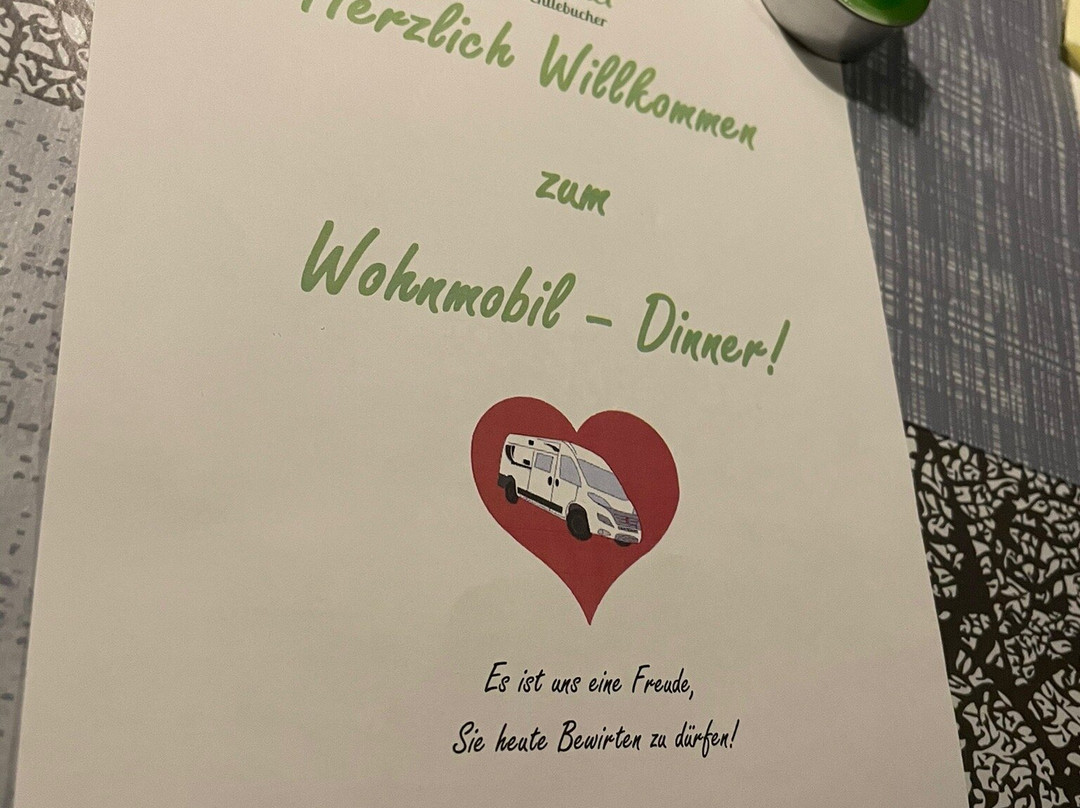 Herzlich Willkommen
zum
Wohnmobil – Dinner!
Es ist uns eine Freude,
Sie heute Bewirten zu dürfen!